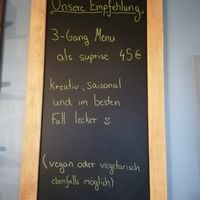 Unsere Empfehlung
3-Gang Menu
als suprise 45€
kreativ, saisonal
und im besten
Fall lecker :)
(vegan oder vegetarisch
ebenfalls möglich)